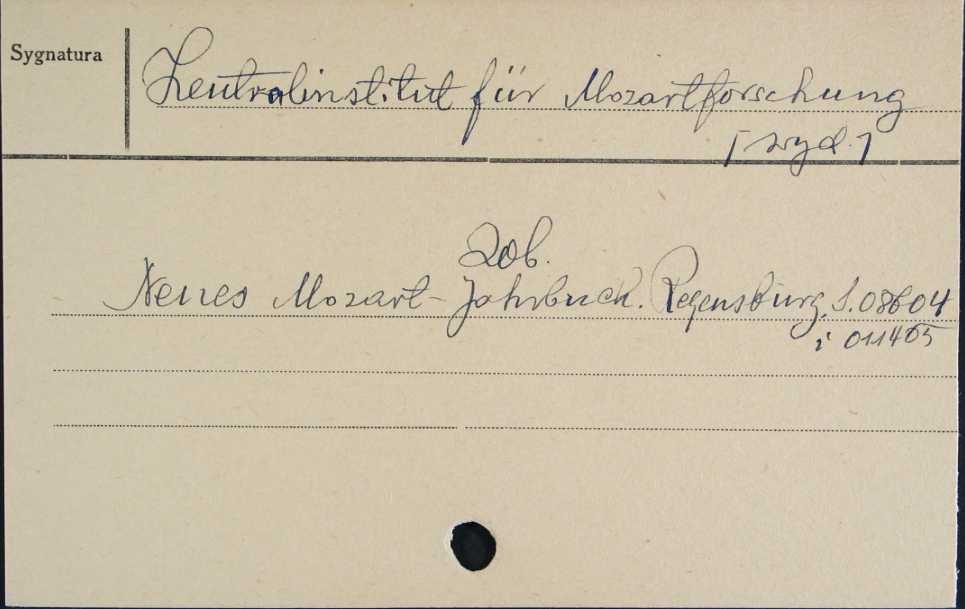 Sygnatura
Zentralinstitut für Mozartforschung
[wyd.]
Zob.
Neues Mozart-Jahrbuch. Regensburg. S.08604
i 011405